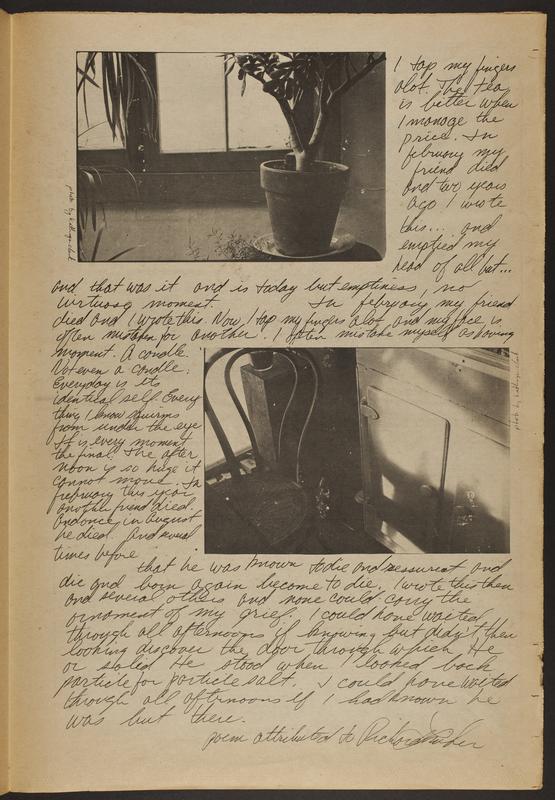 I tap my fingers
alot. The tea
is better when
I manage the
price. In
february my
friend died
and two years
ago I wrote
this... and
emptied my
head of all but...
and that was it and is today but emptiness, no
virtuoso moment. In february my friend
died and I wrote this. Now, I tap my fingers alot and my face is
often mistaken for another. I often mistake myself as having
moment. A candle.
Not even a candle.
Everyday is its
identical self. Every
thing I know squirms
from under the eye
It is every moment
the final. The after
noon is so huge it
cannot move. In
february this year
another friend died.
And once, in August
he died. And several
times before
that he was known to die and ressurect and
die and born again become to die. I wrote this then
and several others and none could carry the
ornament of my grief. I could have waited
through all afternoons if knowing but didn't then
looking discover the door through which He
or salted He stood when I looked back
particle for particle salt. I could have waited
through all afternoons if I had known he
was but there.
poem attributed to Richard
photo by
photo by